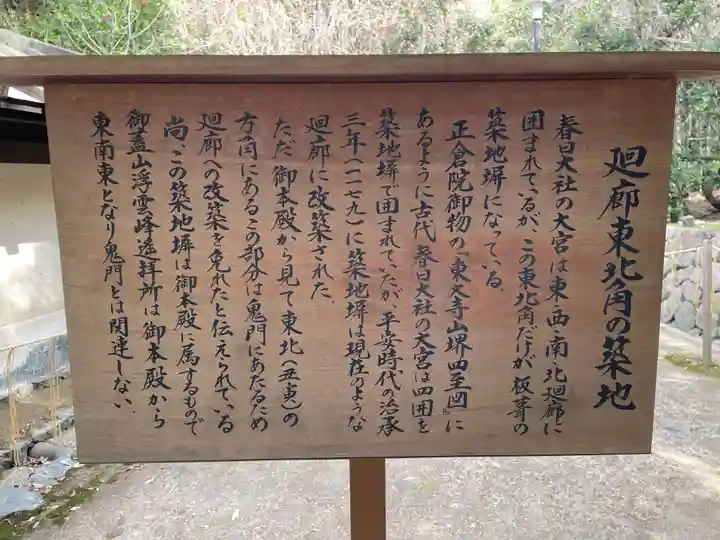 廻廊東北角の築地
春日大社の大宮は東・西・南・北廻廊に
囲まれているが、この東北角だけが板葺の
築地塀になっている。
正倉院御物の『東大寺山堺四至図』に
あるように古代、春日大社の大宮は四囲を
築地塀で囲まれていたが、平安時代の治承
三年(一一七九)に築地塀は現在のような
廻廊に改築された。
ただ御本殿から見て東北(丑寅)の
方角にあるこの部分は鬼門にあたるため
廻廊への改築を免れたと伝えられている
尚、この築地塀は御本殿に属するもので
御蓋山浮雲峰遙拝所は御本殿から
東南東となり鬼門とは関連しない。